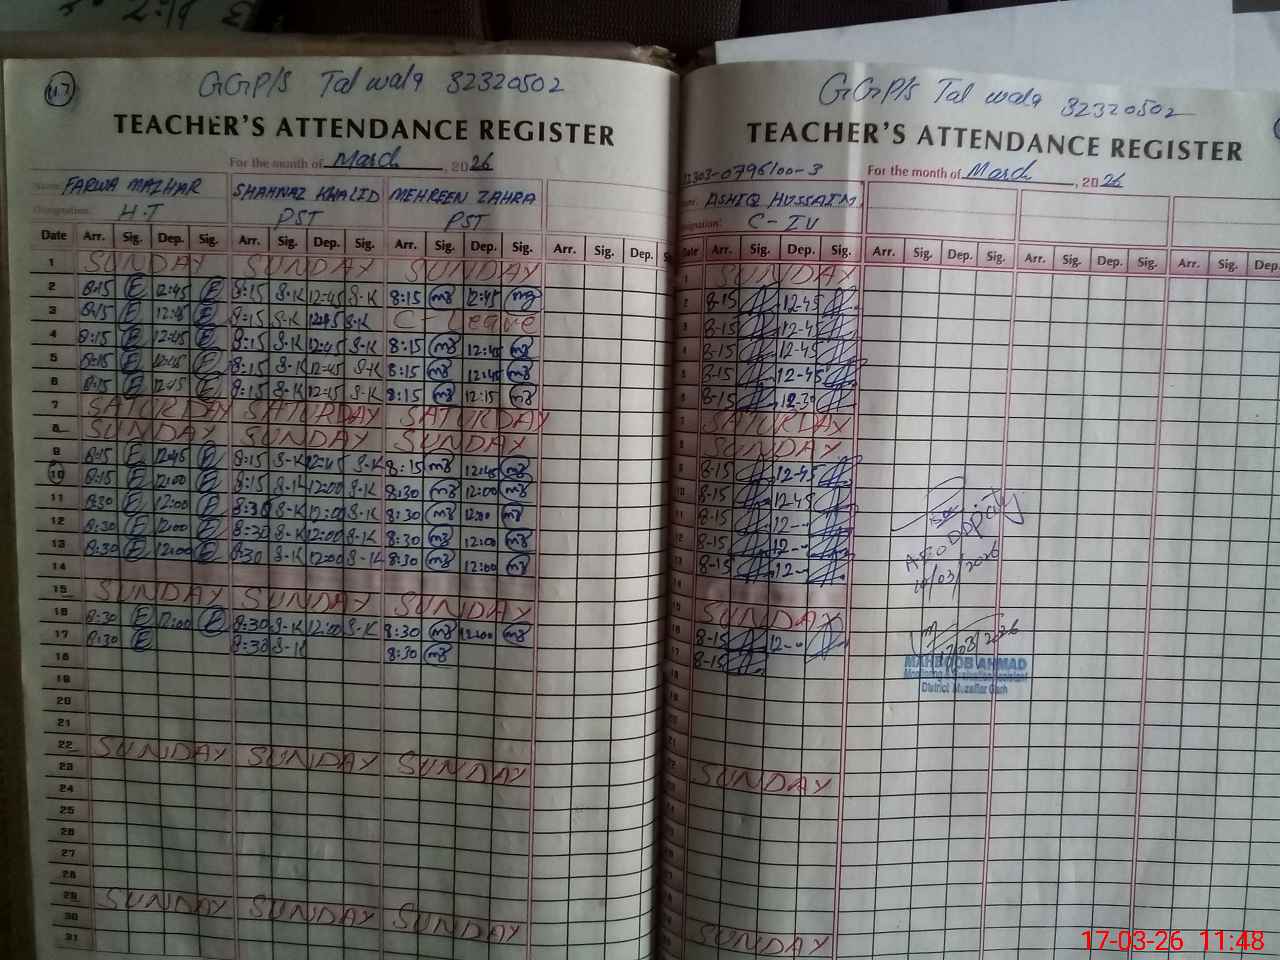 GGP/S Tal wala 32320502
TEACHER'S ATTENDANCE REGISTER
For the month of March, 2026
FARWA MAZHAR SHAHNAZ KHALID MEHREEN ZAHRA
Designation: H.T PST PST
Date Arr. Sig. Dep. Sig. Arr. Sig. Dep. Sig. Arr. Sig. Dep. Sig. Arr. Sig. Dep.
1 SUNDAY SUNDAY SUNDAY
2 8:15 12:45 8:15 S-K 12:45 S-K 8:15 12:45
3 8:15 12:45 8:15 S-K 12:45 S-K C-Leave
4 8:15 12:45 8:15 S-K 12:45 S-K 8:15 12:45
5 8:15 12:45 8:15 S-K 12:45 S-K 8:15 12:45
6 8:15 12:45 8:15 S-K 12:45 S-K 8:15 12:15
7 SATURDAY SATURDAY SATURDAY
8 SUNDAY SUNDAY SUNDAY
9 8:15 12:45 8:15 S-K 12:45 S-K 8:15 12:45
10 8:15 12:00 8:15 S-K 12:00 S-K 8:30 12:00
11 8:30 12:00 8:30 S-K 12:00 S-K 8:30 12:00
12 8:30 12:00 8:30 S-K 12:00 S-K 8:30 12:00
13 8:30 12:00 8:30 S-K 12:00 S-K 8:30 12:00
14
15 SUNDAY SUNDAY SUNDAY
16 8:30 12:00 8:30 S-K 12:00 S-K 8:30 12:00
17 8:30 8:30 S-K 8:30
18
19
20
21
22 SUNDAY SUNDAY SUNDAY
23
24
25
26
27
28
29 SUNDAY SUNDAY SUNDAY
30
31
GGP/S Tal wala 32320502
TEACHER'S ATTENDANCE REGISTER
For the month of March, 2026
ASHIQ HUSSAIN
C-IV
Date Arr. Sig. Dep. Sig. Arr. Sig. Dep. Sig. Arr. Sig. Dep. Sig. Arr. Sig. Dep.
SUNDAY
8-15 12-45
8-15 12-45
8-15 12-45
8-15 12-45
8-15 12-30
SATURDAY
SUNDAY
8-15 12-45
8-15 12-45
8-15 12--
8-15 12--
8-15 12--
SUNDAY
8-15 12--
8-15
SUNDAY
SUNDAY
10/03/2026
17/03/2026
MAHBOOB AHMAD
District Muzaffar Garh
17-03-26 11:48